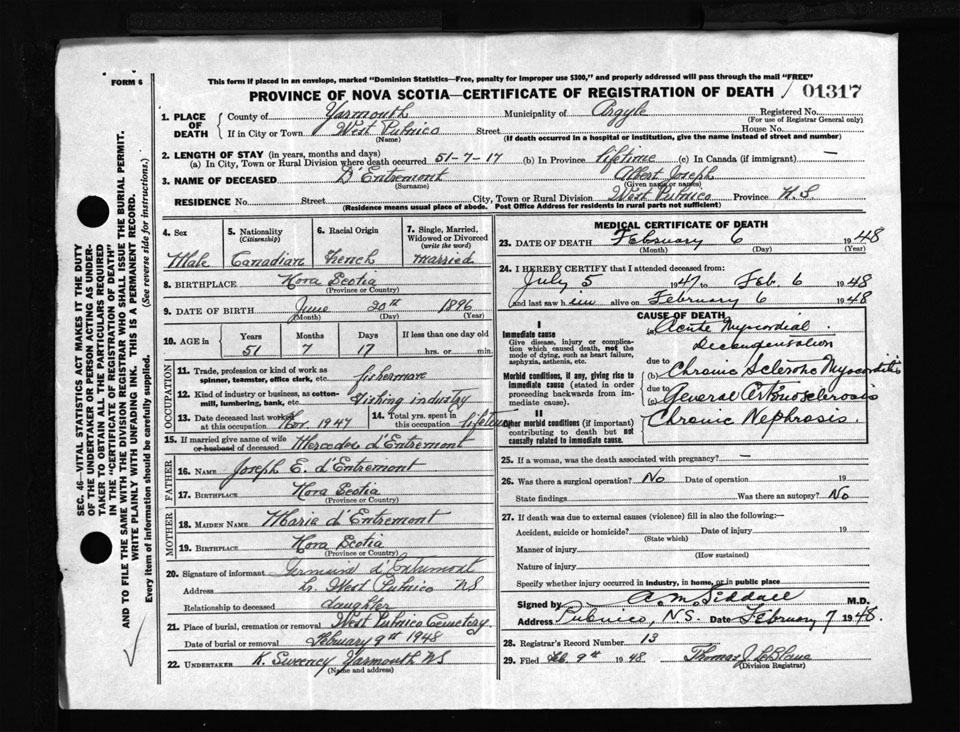 FORM 6
This form if placed in an envelope, marked "Dominion Statistics—Free, penalty for improper use $300," and properly addressed will pass through the mail "FREE"
PROVINCE OF NOVA SCOTIA—CERTIFICATE OF REGISTRATION OF DEATH / 01317
1. PLACE OF DEATH
County of Yarmouth Municipality of Argyle Registered No.
(For use of Registrar General only)
If in City or Town West Pubnico Street House No.
(Name) (If death occurred in a hospital or institution, give the name instead of street and number)
2. LENGTH OF STAY (in years, months and days)
(a) In City, Town or Rural Division where death occurred 51-7-17 (b) In Province lifetime (c) In Canada (if immigrant) —
3. NAME OF DECEASED D'Entremont Albert Joseph
(Surname) (Given name or names)
RESIDENCE No. Street City, Town or Rural Division West Pubnico Province N.S.
(Residence means usual place of abode. Post Office Address for residents in rural parts not sufficient)
4. Sex Male
5. Nationality (Citizenship) Canadian
6. Racial Origin French
7. Single, Married, Widowed or Divorced (write the word) married
8. BIRTHPLACE Nova Scotia
(Province or Country)
9. DATE OF BIRTH June 20th 1896
(Month) (Day) (Year)
10. AGE in Years Months Days If less than one day old
51 7 17 hrs. or min.
OCCUPATION
11. Trade, profession or kind of work as spinner, teamster, office clerk, etc. fisherman
12. Kind of industry or business, as cotton-mill, lumbering, bank, etc. Fishing industry
13. Date deceased last worked at this occupation Nov. 1947
14. Total yrs. spent in this occupation lifetime
15. If married give name of wife or husband of deceased Mercedes d'Entremont
FATHER
16. NAME Joseph E. d'Entremont
17. BIRTHPLACE Nova Scotia
(Province or Country)
MOTHER
18. MAIDEN NAME Marie d'Entremont
19. BIRTHPLACE Nova Scotia
(Province or Country)
20. Signature of informant d'Entremont
Address West Pubnico NS
Relationship to deceased daughter
21. Place of burial, cremation or removal West Pubnico Cemetery.
Date of burial or removal February 9th 1948
22. UNDERTAKER K. Sweeney Yarmouth NS
(Name and address)
MEDICAL CERTIFICATE OF DEATH
23. DATE OF DEATH February 6 1948
(Month) (Day) (Year)
24. I HEREBY CERTIFY that I attended deceased from:
July 5 1947 to Feb. 6 1948
and last saw him alive on February 6 1948
CAUSE OF DEATH
I
Immediate cause
Give disease, injury or complication which caused death, not the mode of dying, such as heart failure, asphyxia, asthenia, etc.
(a) Acute Myocordial Decompensation
due to
Morbid conditions, if any, giving rise to immediate cause (stated in order proceeding backwards from immediate cause).
(b) Chronic Sclerotic Myocarditis
due to
(c) General Arteriosclerosis
II
Other morbid conditions (if important) contributing to death but not causally related to immediate cause.
Chronic Nephrosis.
25. If a woman, was the death associated with pregnancy? —
26. Was there a surgical operation? No Date of operation 19
State findings Was there an autopsy? No
27. If death was due to external causes (violence) fill in also the following:—
Accident, suicide or homicide? Date of injury 19
(State which)
Manner of injury
(How sustained)
Nature of injury
Specify whether injury occurred in industry, in home, or in public place
Signed by A.M. Siddall M.D.
Address Pubnico, N.S. Date February 7 1948.
28. Registrar's Record Number 13
29. Filed Feb. 9th 1948 Thomas J. LeBlanc
(Division Registrar)
SEC. 46—VITAL STATISTICS ACT MAKES IT THE DUTY
OF THE UNDERTAKER OR PERSON ACTING AS UNDER-
TAKER TO OBTAIN ALL THE PARTICULARS REQUIRED
IN THE "CERTIFICATE OF REGISTRATION OF DEATH"
AND TO FILE THE SAME WITH THE DIVISION REGISTRAR WHO SHALL ISSUE THE BURIAL PERMIT.
WRITE PLAINLY WITH UNFADING INK. THIS IS A PERMANENT RECORD.
Every item of information should be carefully supplied. (See reverse side for instructions.)